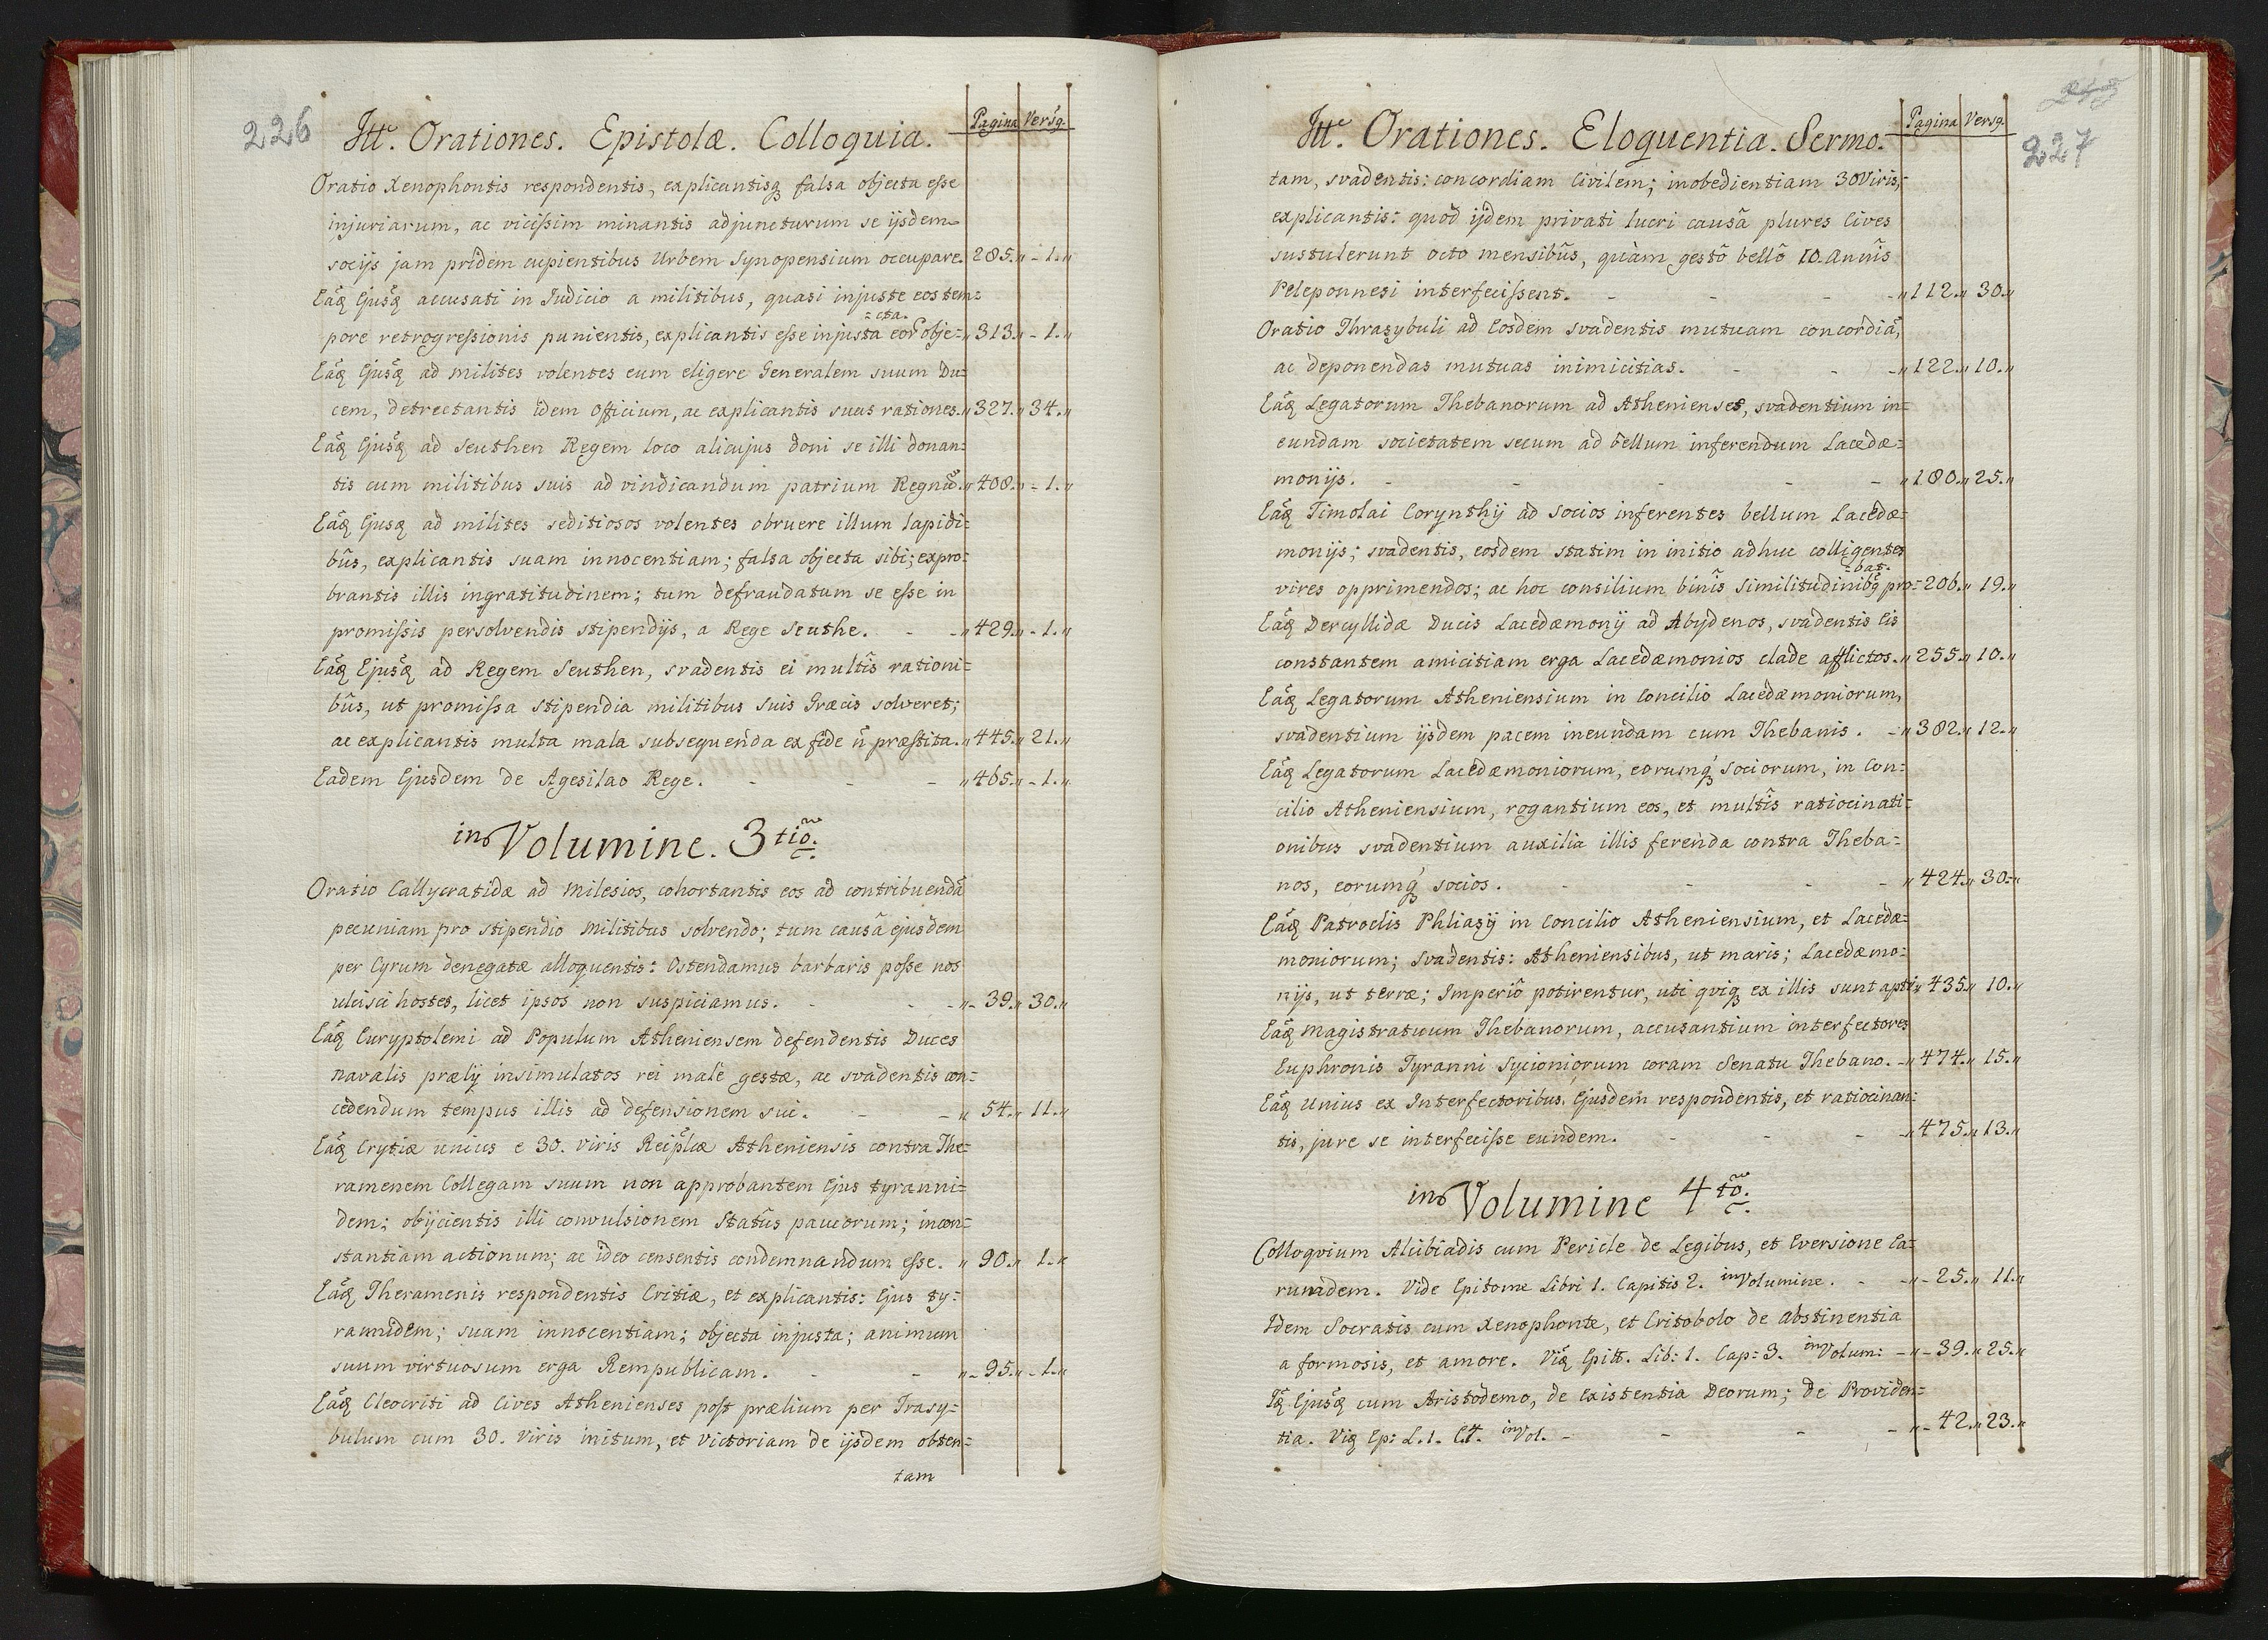 226
Itte. Orationes. Epistolæ. Colloquia. Pagina Versq.
Oratio Xenophontis respondentis, explicantisq falsa objecta esse
injuriarum, ac vicissim minantis adjuncturum se ijsdem
socijs jam pridem cupientibus Urbem Synopensium occupare. 285. „ - 1. „
Eãq Ejusq accusati in Iudicio a militibus, quasi injuste eos tem=
=cta.
pore retrogressionis punientis, explicantis esse injusta eor obje= „ 313. „ - 1. „
Eãq Ejusq ad milites volentes eum eligere Generalem suum Du=
cem, detrectantis idem officium, ac explicantis suas rationes. „ 327. „ 34. „
Eãq Ejusq ad Seuthen Regem loco alicujus doni se illi donan=
tis cum militibus suis ad vindicandum patrium Regnũ. „ 408. „ - 1. „
Eãq Ejusq ad milites seditiosos volentes obruere illum lapidi=
bûs, explicantis suam innocentiam; falsa objecta sibi; expro=
brantis illis ingratitudinem; tum defraudatum se esse in
promissis persolvendis stipendijs, a Rege Seuthe. - - „ 429. „ - 1. „
Eãq Ejusq ad Regem Seuthen, svadentis ei multîs rationi=
bûs, ut promissa stipendia militibus suis Græcis solveret;
ac explicantis multa mala subsequenda ex fide ñ præstita. „ 445. „ 21. „
Eadem Ejusdem de Agesilao Rege. - - - „ 465. „ - 1. „
in Volumine. 3tio.
Oratio Callycratidæ ad Milesios, cohortantis eos ad contribuendã
pecuniam pro stipendio Militibus solvendo; tum causâ ejusdem
per Cyrum denegatæ alloquentis: Ostendamus barbaris posse nos
ulcisci hostes, licet ipsos non suspiciamus. - - - „ - 39. „ 30. „
Eãq Euryptolemi ad Populum Atheniensem defendentis Duces
navalis prælij insimulatos rei malè gestæ, ac svadentis con=
cedendum tempus illis ad defensionem sui. - - „ 54. „ 11. „
Eãq Crytiæ unius e 30. viris Reiplcæ Atheniensis contra The=
ramenem Collegam suum non approbantem Ejus tyranni=
dem; objicientis illi convulsionem Statûs paucorum; incon=
stantiam actionum; ac ideo censentis condemnandum esse. „ 90. „ 1. „
Eãq Theramenis respondentis Critiæ, et explicantis: Ejus ty=
rannidem; suam innocentiam; objecta injusta; animum
suum virtuosum erga Rempublicam. - - „ - 95. „ - 1. „
Eãq Cleocriti ad Cives Athenienses post prælium per Trasy=
bulum cum 30. viris initum, et victoriam de ijsdem obten=
tam
227
Itte. Orationes. Eloquentia. Sermo. Pagina Versq.
tam, svadentis: concordiam Civilem; inobedientiam 30 Viris,
explicantis: quòd ijdem privati lucri causâ plures Cives
sustulerunt octo mensibûs, quàm gestô bellô 10. annîs
Peleponnesi interfecissent. - - - - „ 112. „ 30. „
Oratio Thrasybuli ad Eosdem svadentis mutuam concordiã,
ac deponendas mutuas inimicitias. - - - „ 122. „ 10. „
Eãq Legatorum Thebanorum ad Athenienses, svadentium in=
eundam societatem secum ad bellum inferendum Lacedæ=
monijs. - - - - - „ 180. „ 25. „
Eãq Timolai Corynthij ad socios inferentes bellum Lacedæ=
monijs; svadentis, eosdem statim in initio adhuc colligentes
=bat.
vires opprimendos; ac hoc consilium binîs similitudinibq pro= 206. „ 19. „
Eãq Dercyllidæ Ducis Lacedæmonij ad Abydenos, svadentis Eis
constantem amicitiam erga Lacedæmonios clade afflictos. „ 255. „ 10. „
Eãq Legatorum Atheniensium in Concilio Lacedæmoniorum,
svadentium ijsdem pacem ineundam cum Thebanis. - „ 382. „ 12. „
Eãq Legatorum Lacedæmoniorum, eorumq sociorum, in Con=
cilio Atheniensium, rogantium eos, et multîs ratiocinati=
onibus svadentium auxilia illis ferenda contra Theba=
nos, eorumq socios. - - - - „ 424. „ 30. „
Eãq Patroclis Phliasij in Concilio Atheniensium, et Lacedæ=
moniorum; svadentis: Atheniensibus, ut maris; Lacedæmo=
nijs, ut terræ; Imperiô potirentur, uti qviq ex illis sunt apti. „ 435. „ 10. „
Eãq Magistratuum Thebanorum, accusantium interfectores
Euphronis Tyranni Sycioniorum coram Senatu Thebano. - „ 474. „ 15. „
Eãq Unius ex Interfectoribus Ejusdem respondentis, et ratiocinan=
tis, jure se interfecisse eundem. - - - - „ 475. „ 13. „
in Volumine 4to.
Colloqvium Alcibiadis cum Pericle de Legibus, et Eversione Ea=
rundem. Vide Epitome Libri 1. Capitis 2. in Volumine. - - „ - 25. „ 11. „
Idem Socratis cum Xenophonte, et Critobolo de Abstinentia
a formosis, et amore. Viq Epitt. Lib: 1. Cap: 3. in Volum: - „ - 39. „ 25. „
Iq Ejusq cum Aristodemo, de Existentia Deorum; de Providen=
tia. Viq Ep: L. 1. C. 4. in Vol. - - - - „ - 42. „ 23. „